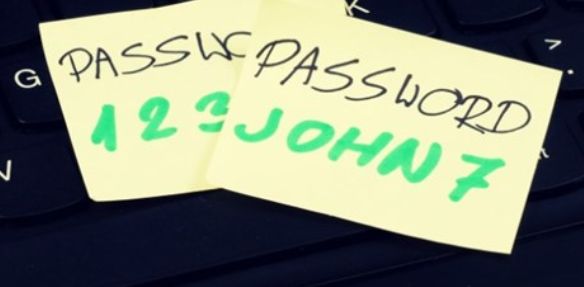 PASSWO
123
PASSWORD
JOHN7
G
K
>
.